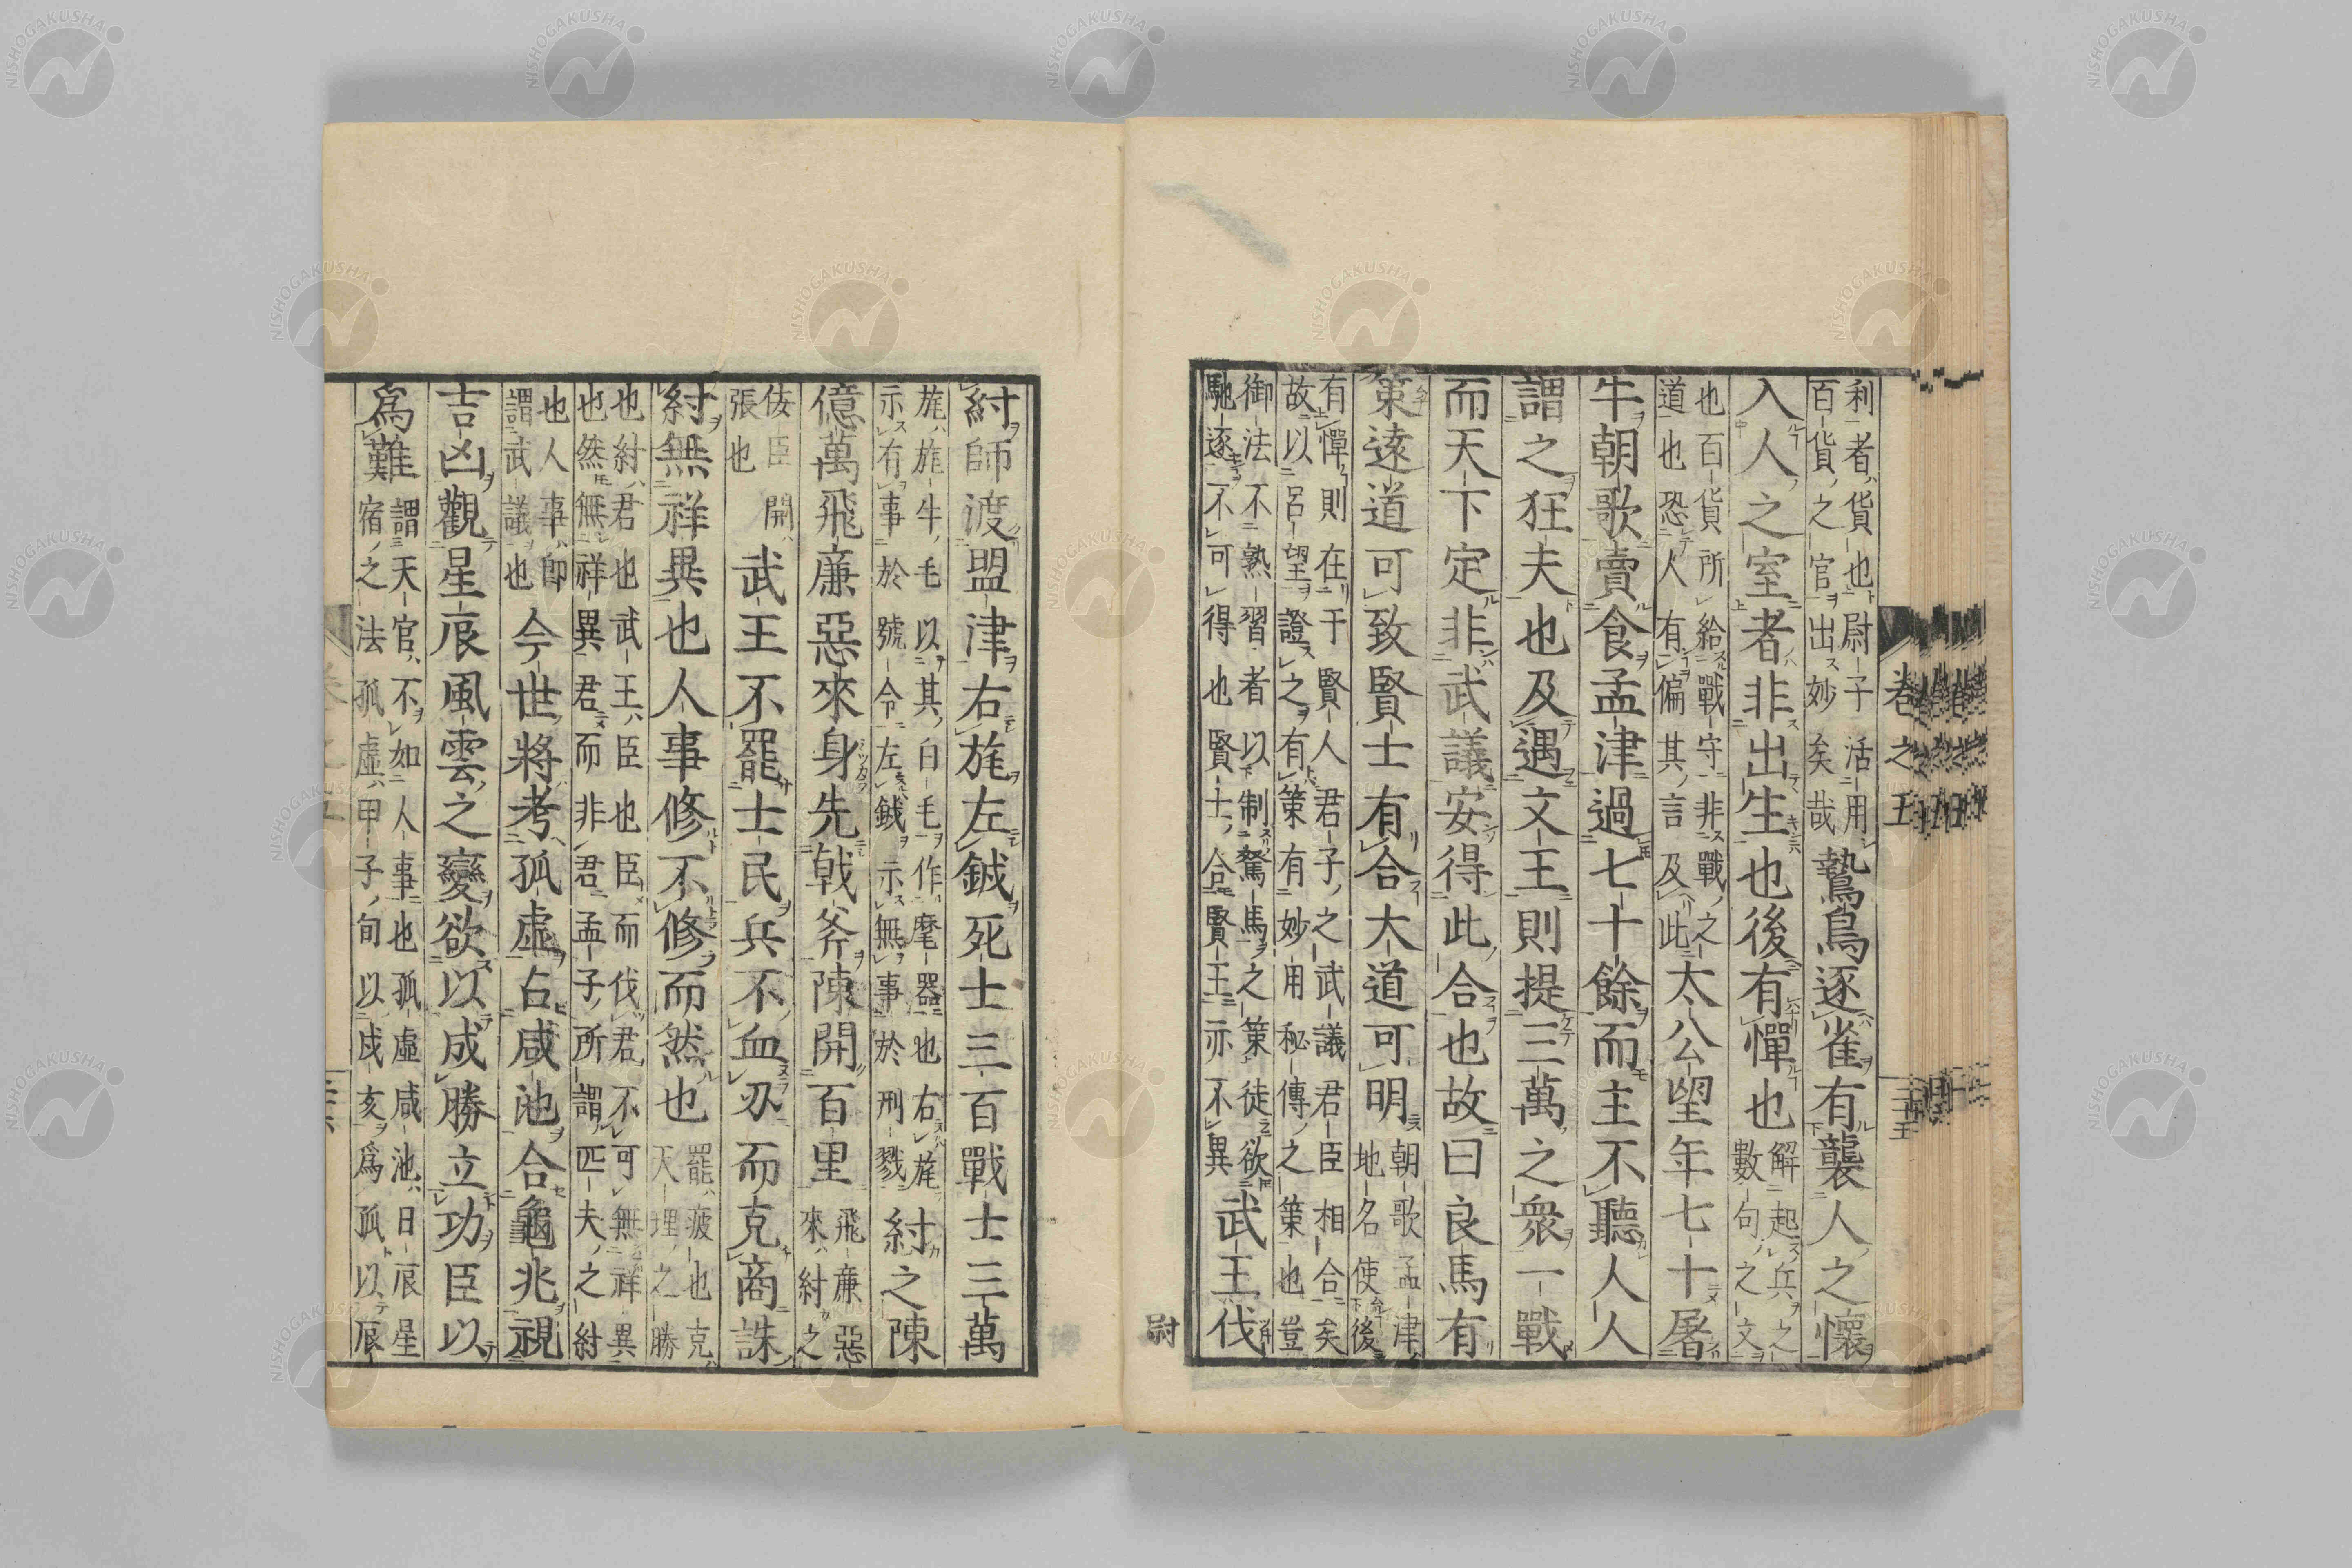 利者貨也尉子活用
百貨之官出妙矣哉
鷙鳥逐雀有襲人之懷
入人之室者非出生也後有憚也
解起兵之
數句之文
也百貨所給戰守非戰之
道也恐人有偏其言及此
太公望年七十屠
牛朝歌賣食孟津過七十餘而主不聽人人
謂之狂夫也及遇文王則提三萬之衆一戰
而天下定非武議安得此合也故曰良馬有
策遠道可致賢士有合大道可明
朝歌孟津
地名使後
有憚則在于賢人君子之武議君臣相合矣
故以呂望證之有策有妙用秘傳之策也豈
御法不熟習者以制駑馬之策徒欲
馳逐不可得也賢士合賢王亦不異
武王伐
尉
卷之五
三十五
紂師渡盟津右旄左鉞死士三百戰士三萬
旄旄牛毛以其白毛作麾器也右旄
示有事於號令左鉞示無事於刑戮
紂之陳
億萬飛廉惡來身先戟斧陳開百里
飛廉惡
來紂之
侫臣開
張也
武王不罷士民兵不血刃而克商誅
紂無祥異也人事修不修而然也
罷疲也克
天理之勝
也紂君也武王臣也臣而伐君不可無祥異
也然無祥異君而非君孟子所謂匹夫之紂
也人事即
謂武議也
今世將考孤虛占咸池合龜兆視
吉凶觀星辰風雲之變欲以成勝立功臣以
爲難
謂天官不如人事也孤虛咸池日辰星
宿之法孤虛甲子旬以戌亥爲孤以辰